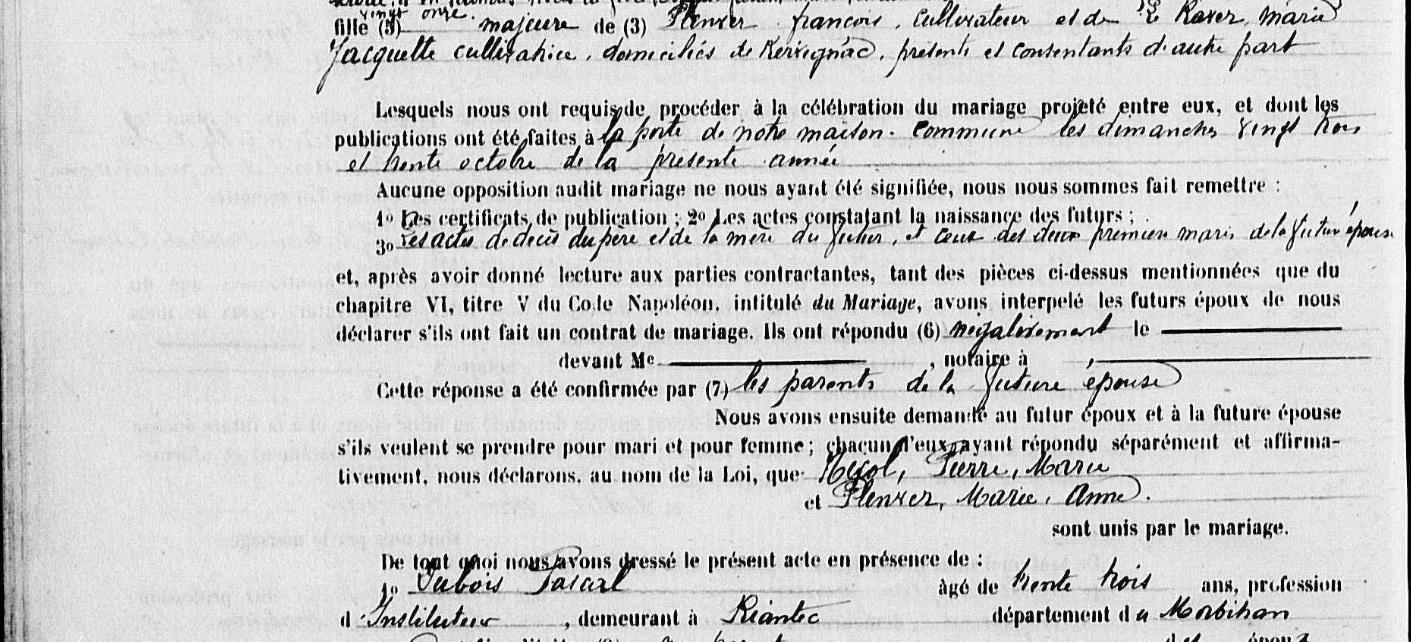 vingt onze
fille (5) majeure de (3) Plenxer françois, cultivateur et de Le Raver, marie
Jacquette cultivatrice, domiciliés de Kervignac, présents et consentants d'autre part
Lesquels nous ont requis de procéder à la célébration du mariage projeté entre eux, et dont les
publications ont été faites à la porte de notre maison-Commune les dimanches vingt trois
et trente octobre de la présente année
Aucune opposition audit mariage ne nous ayant été signifiée, nous nous sommes fait remettre :
1o Les certificats de publication ; 2o Les actes constatant la naissance des futurs ;
3o Les actes de decès du père et de la mère du futur, et ceux des deux premiers maris de la future épouse
et, après avoir donné lecture aux parties contractantes, tant des pièces ci-dessus mentionnées que du
chapitre VI, titre V du Code Napoléon, intitulé du Mariage, avons interpelé les futurs époux de nous
déclarer s'ils ont fait un contrat de mariage. Ils ont répondu (6) négativement le
devant Me , notaire à ,
Cette réponse a été confirmée par (7) les parents de la future épouse
Nous avons ensuite demandé au futur époux et à la future épouse
s'ils veulent se prendre pour mari et pour femme ; chacun d'eux ayant répondu séparément et affirma-
tivement, nous déclarons, au nom de la Loi, que Nicol, Pierre, Marie
et Plenxer, Marie, Anne.
sont unis par le mariage.
De tout quoi nous avons dressé le présent acte en présence de :
1o Dubois Pascal âgé de trente trois ans, profession
d'Instituteur , demeurant à Riantec département du Morbihan